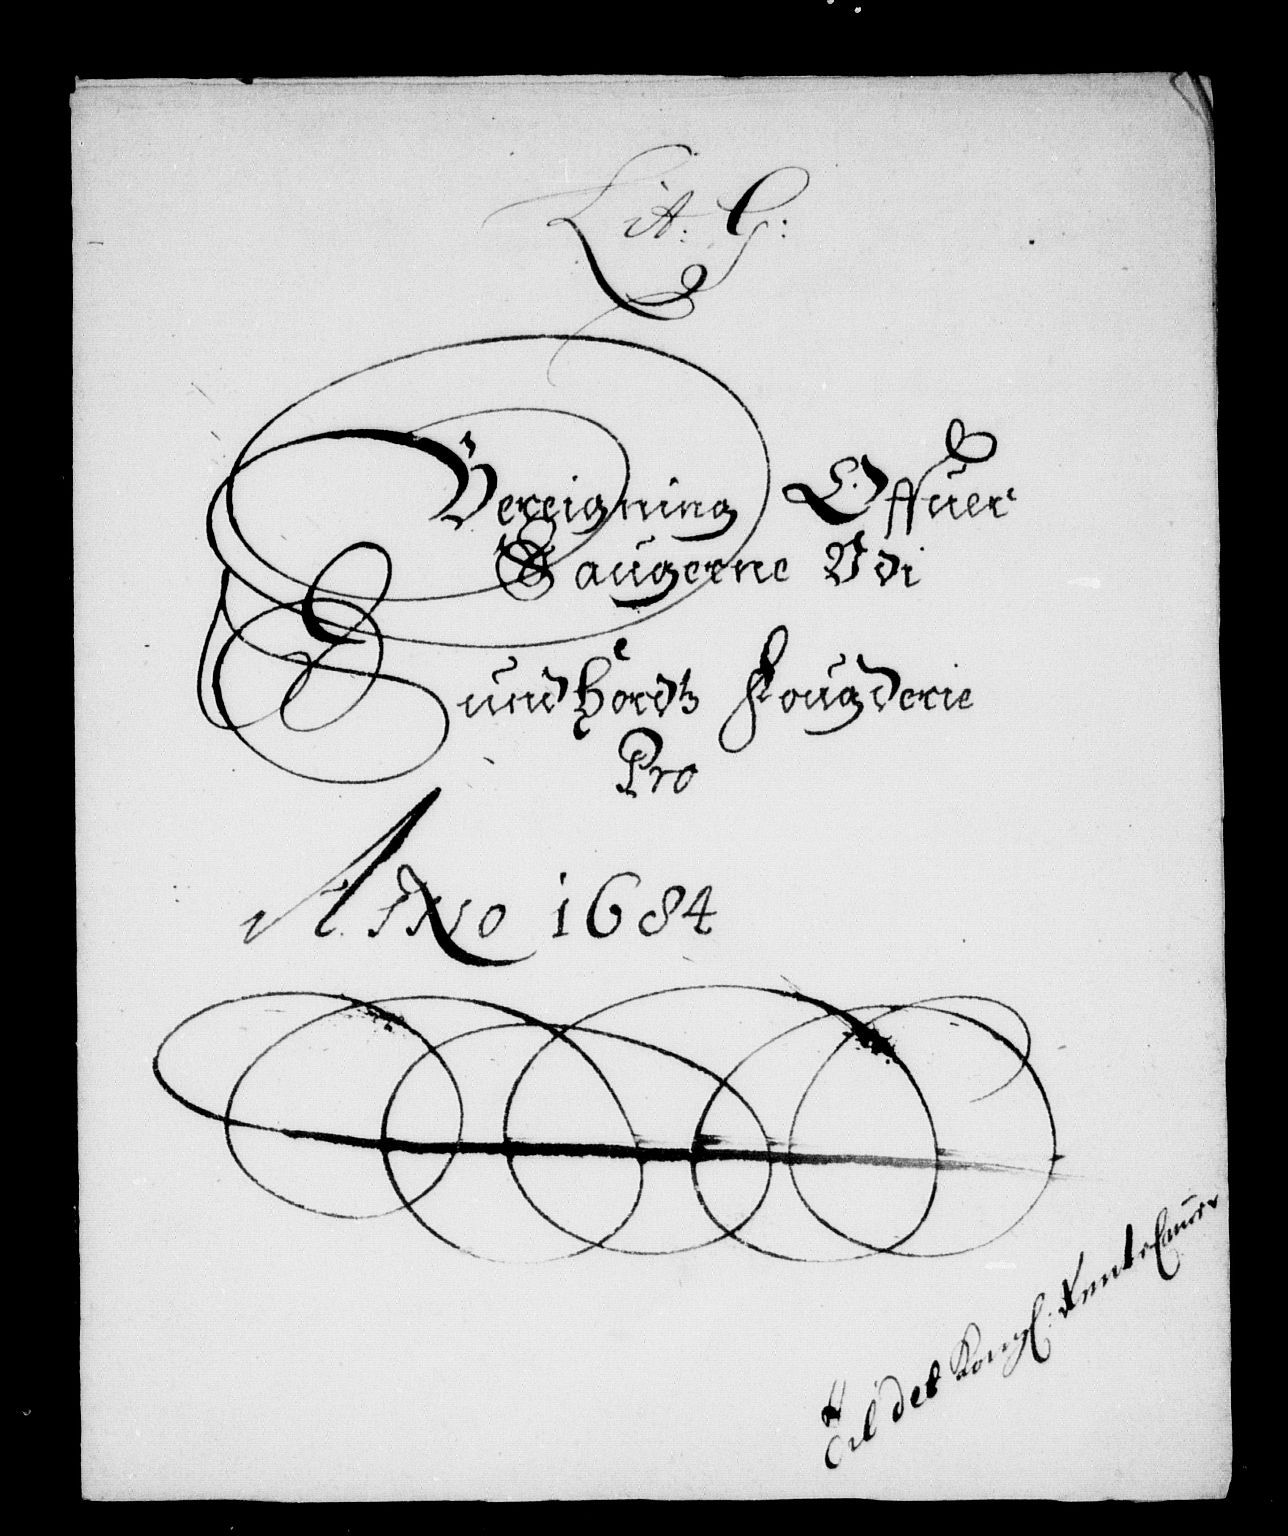 Lit: G:
Bereigning Offuer
Saugerne Udi
SundHordtz Fougderie
Pro
Anno 1684
Til det Kongl: Rente Camer